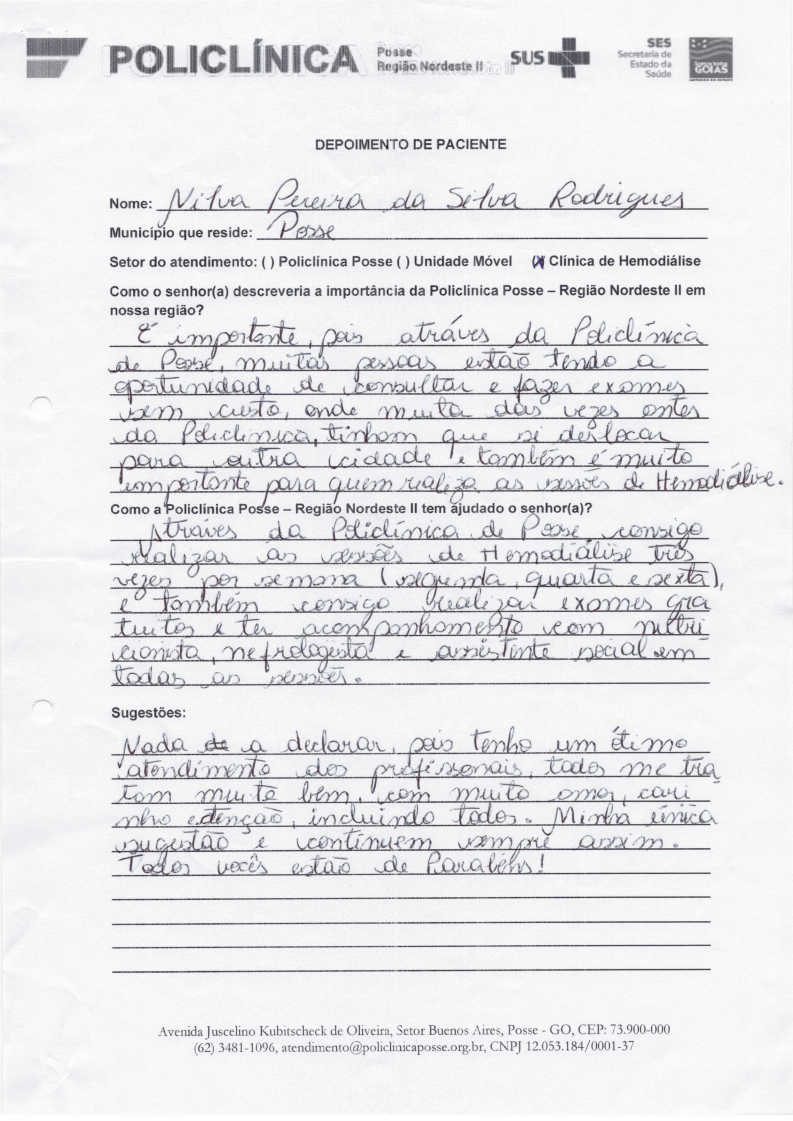 POLICLÍNICA Posse
Região Nordeste II
SUS
SES
Secretaria de
Estado da
Saúde
GOIÁS
DEPOIMENTO DE PACIENTE
Nome: Nilva Pereira da Silva Rodrigues
Município que reside: Posse
Setor do atendimento: ( ) Policlínica Posse ( ) Unidade Móvel (X) Clínica de Hemodiálise
Como o senhor(a) descreveria a importância da Policlínica Posse – Região Nordeste II em
nossa região?
É importante, pois atráves da Policlínica
de Posse, muitas pessoas estão tendo a
oportunidade de consultar e fazer exames
sem custo, onde muita das vezes antes
da Policlinica, tinham que si deslocar
para outra cidade e também é muito
importante para quem realiza as sessões de Hemodiálise.
Como a Policlínica Posse – Região Nordeste II tem ajudado o senhor(a)?
Atráves da Policlínica de Posse, consigo
realizar as sessões de Hemodiálise três
vezes por semana (segunda, quarta e sexta),
e também consigo realizar exames gra
tuitos e ter acompanhamento com nutri
cionista, nefrologista e assistente social em
todas as sessões.
Sugestões:
Nada de a declarar, pois tenho um ótimo
atendimento dos profissonais, todos me tra
tam muito bem, com muito amor, cari
nho e atenção, incluindo todos. Minha única
sugestão e continuem sempre assim.
Todos vocês estão de Parabéns!
Avenida Juscelino Kubitscheck de Oliveira, Setor Buenos Aires, Posse - GO, CEP: 73.900-000
(62) 3481-1096, atendimento@policlinicaposse.org.br, CNPJ 12.053.184/0001-37